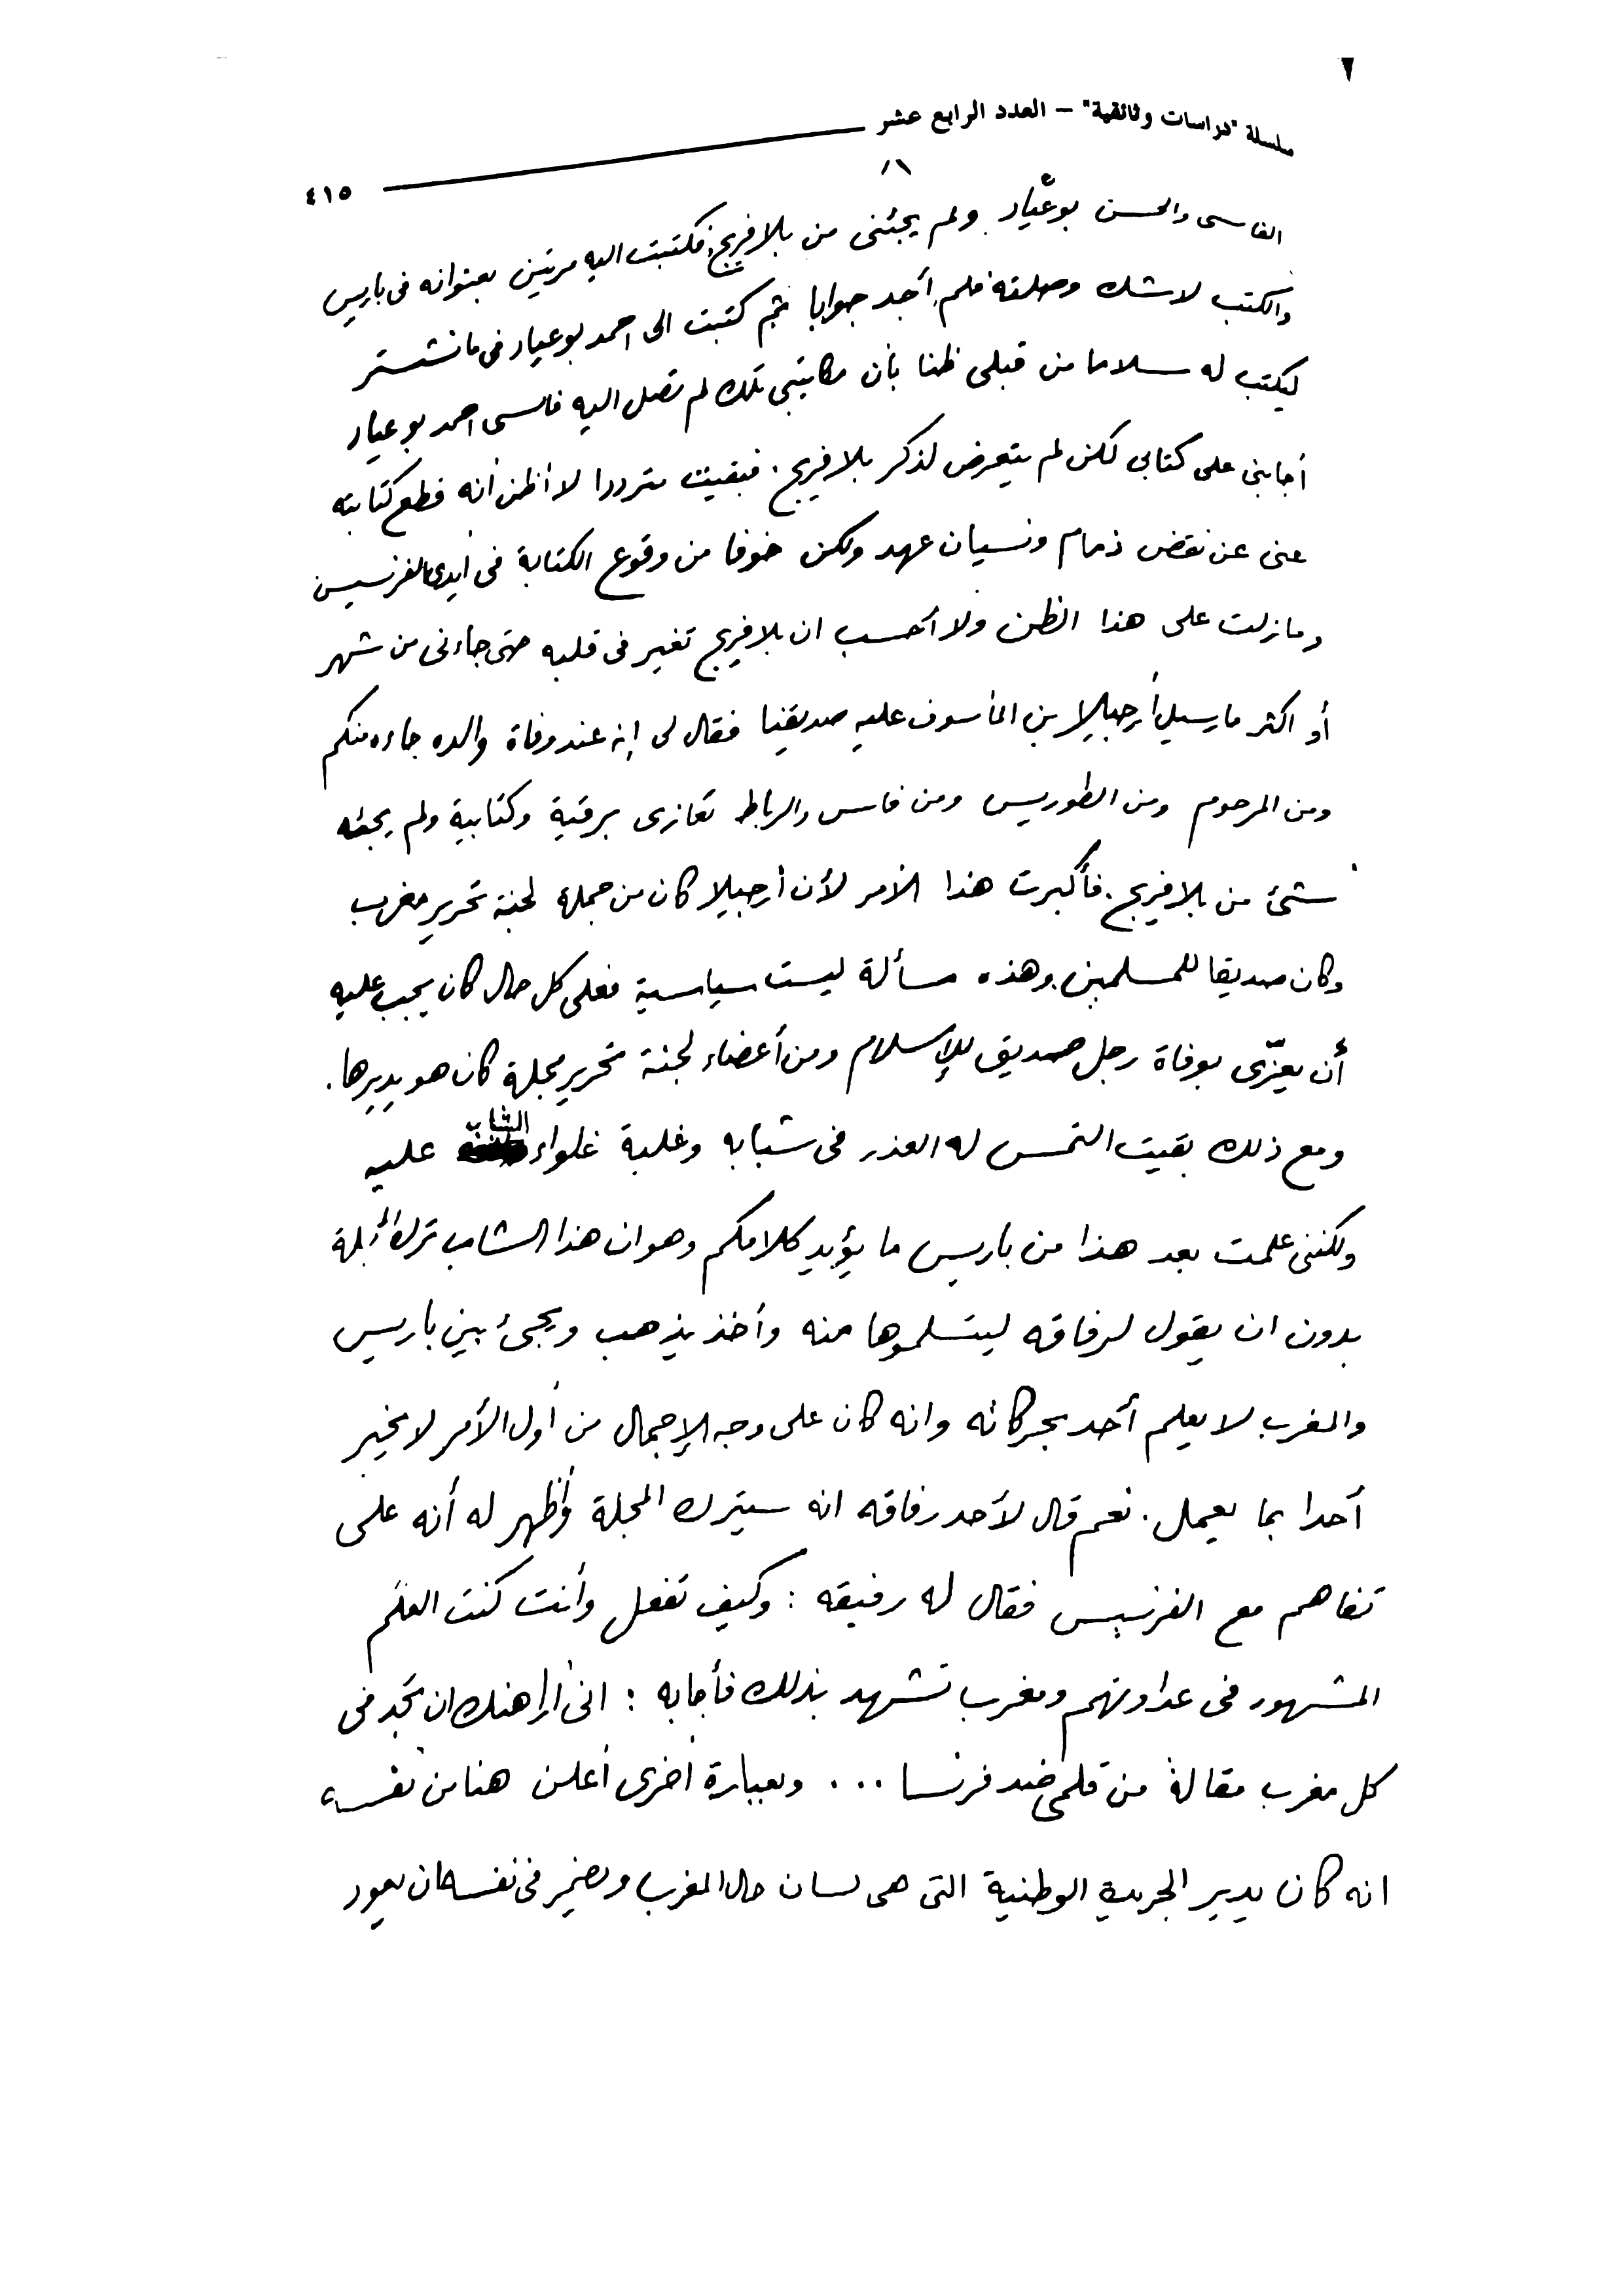 ٢
سلسلة "دراسات وثائقية" – العدد الرابع عشر
٤١٥
الفاسى والحسن بوعيّاد ولم يجئنى من بلافريج فكتبت اليه مرتين بعنوانه فى باريس
والكتب لا شك وصلته فلم أجد جوابا ثم كتبت الى احمد بوعياد فى مانشستر
ليكتب له سلاما من قبلى ظنا بأن مكاتيبى تلك لم تصل اليه فالسى احمد بوعياد
أجابنى على كتابى لكن لم يتعرض لذكر بلافريج . فبقيت مترددا لا أظن أنه قطع كتابته
عنى عن نقض ذمام ونسيان عهد ولكن خوفا من وقوع الكتابة فى ايدى الفرنسيس
ومازلت على هذا الظن ولا أحسب ان بلافريج تغير فى قلبه حتى جاءنى من شهر
أو اكثر مارسيل أرجيلا بن المأسوف عليه صديقنا فقال لى إنه عند وفاة والده جاءه منكم
ومن المرحوم ومن الطوريس ومن فاس والرباط تعازى برقية وكتابية ولم يجئه
شئ من بلافريج . فأكبرت هذا الأمر لأن أرجيلا كان من جملة لجنة تحرير مغرب
وكان صديقا للمسلمين وهذه مسألة ليست سياسية فعلى كل حال كان يجب عليه
أن يعزّى بوفاة رجل صديق للإسلام ومن أعضاء لجنة تحرير مجلة كان هو يديرها .
ومع ذلك بقيت التمس له العذر فى شبابه وغلبة غلواء الشباب عليه
ولكننى علمت بعد هذا من باريس ما يؤيد كلامكم وهو ان هذا الشاب ترك المجلة
بدون ان يقول لرفاقه ليتسلموها منه وأخذ يذهب ويجئ بين باريس
والمغرب لا يعلم أحد بحركاته وانه كان على وجه الإجمال من أول الأمر لا يخبر
أحدا بما يعمل . نعم قال لأحد رفاقه انه سيترك المجلة وأظهر له أنه على
تفاهم مع الفرنسيس فقال له رفيقه : وكيف تفعل وأنت كنت العلم
المشهور فى عداوتهم ومغرب تشهد بذلك فأجابه : انى أراهنك ان تجد فى
كل مغرب مقالة من قلمى ضد فرنسا ... وبعبارة أخرى أعلن هنا من نفسه
انه كان يدير الجريدة الوطنية التى هى لسان حال المغرب ويضمر فى نفسه ان يعود